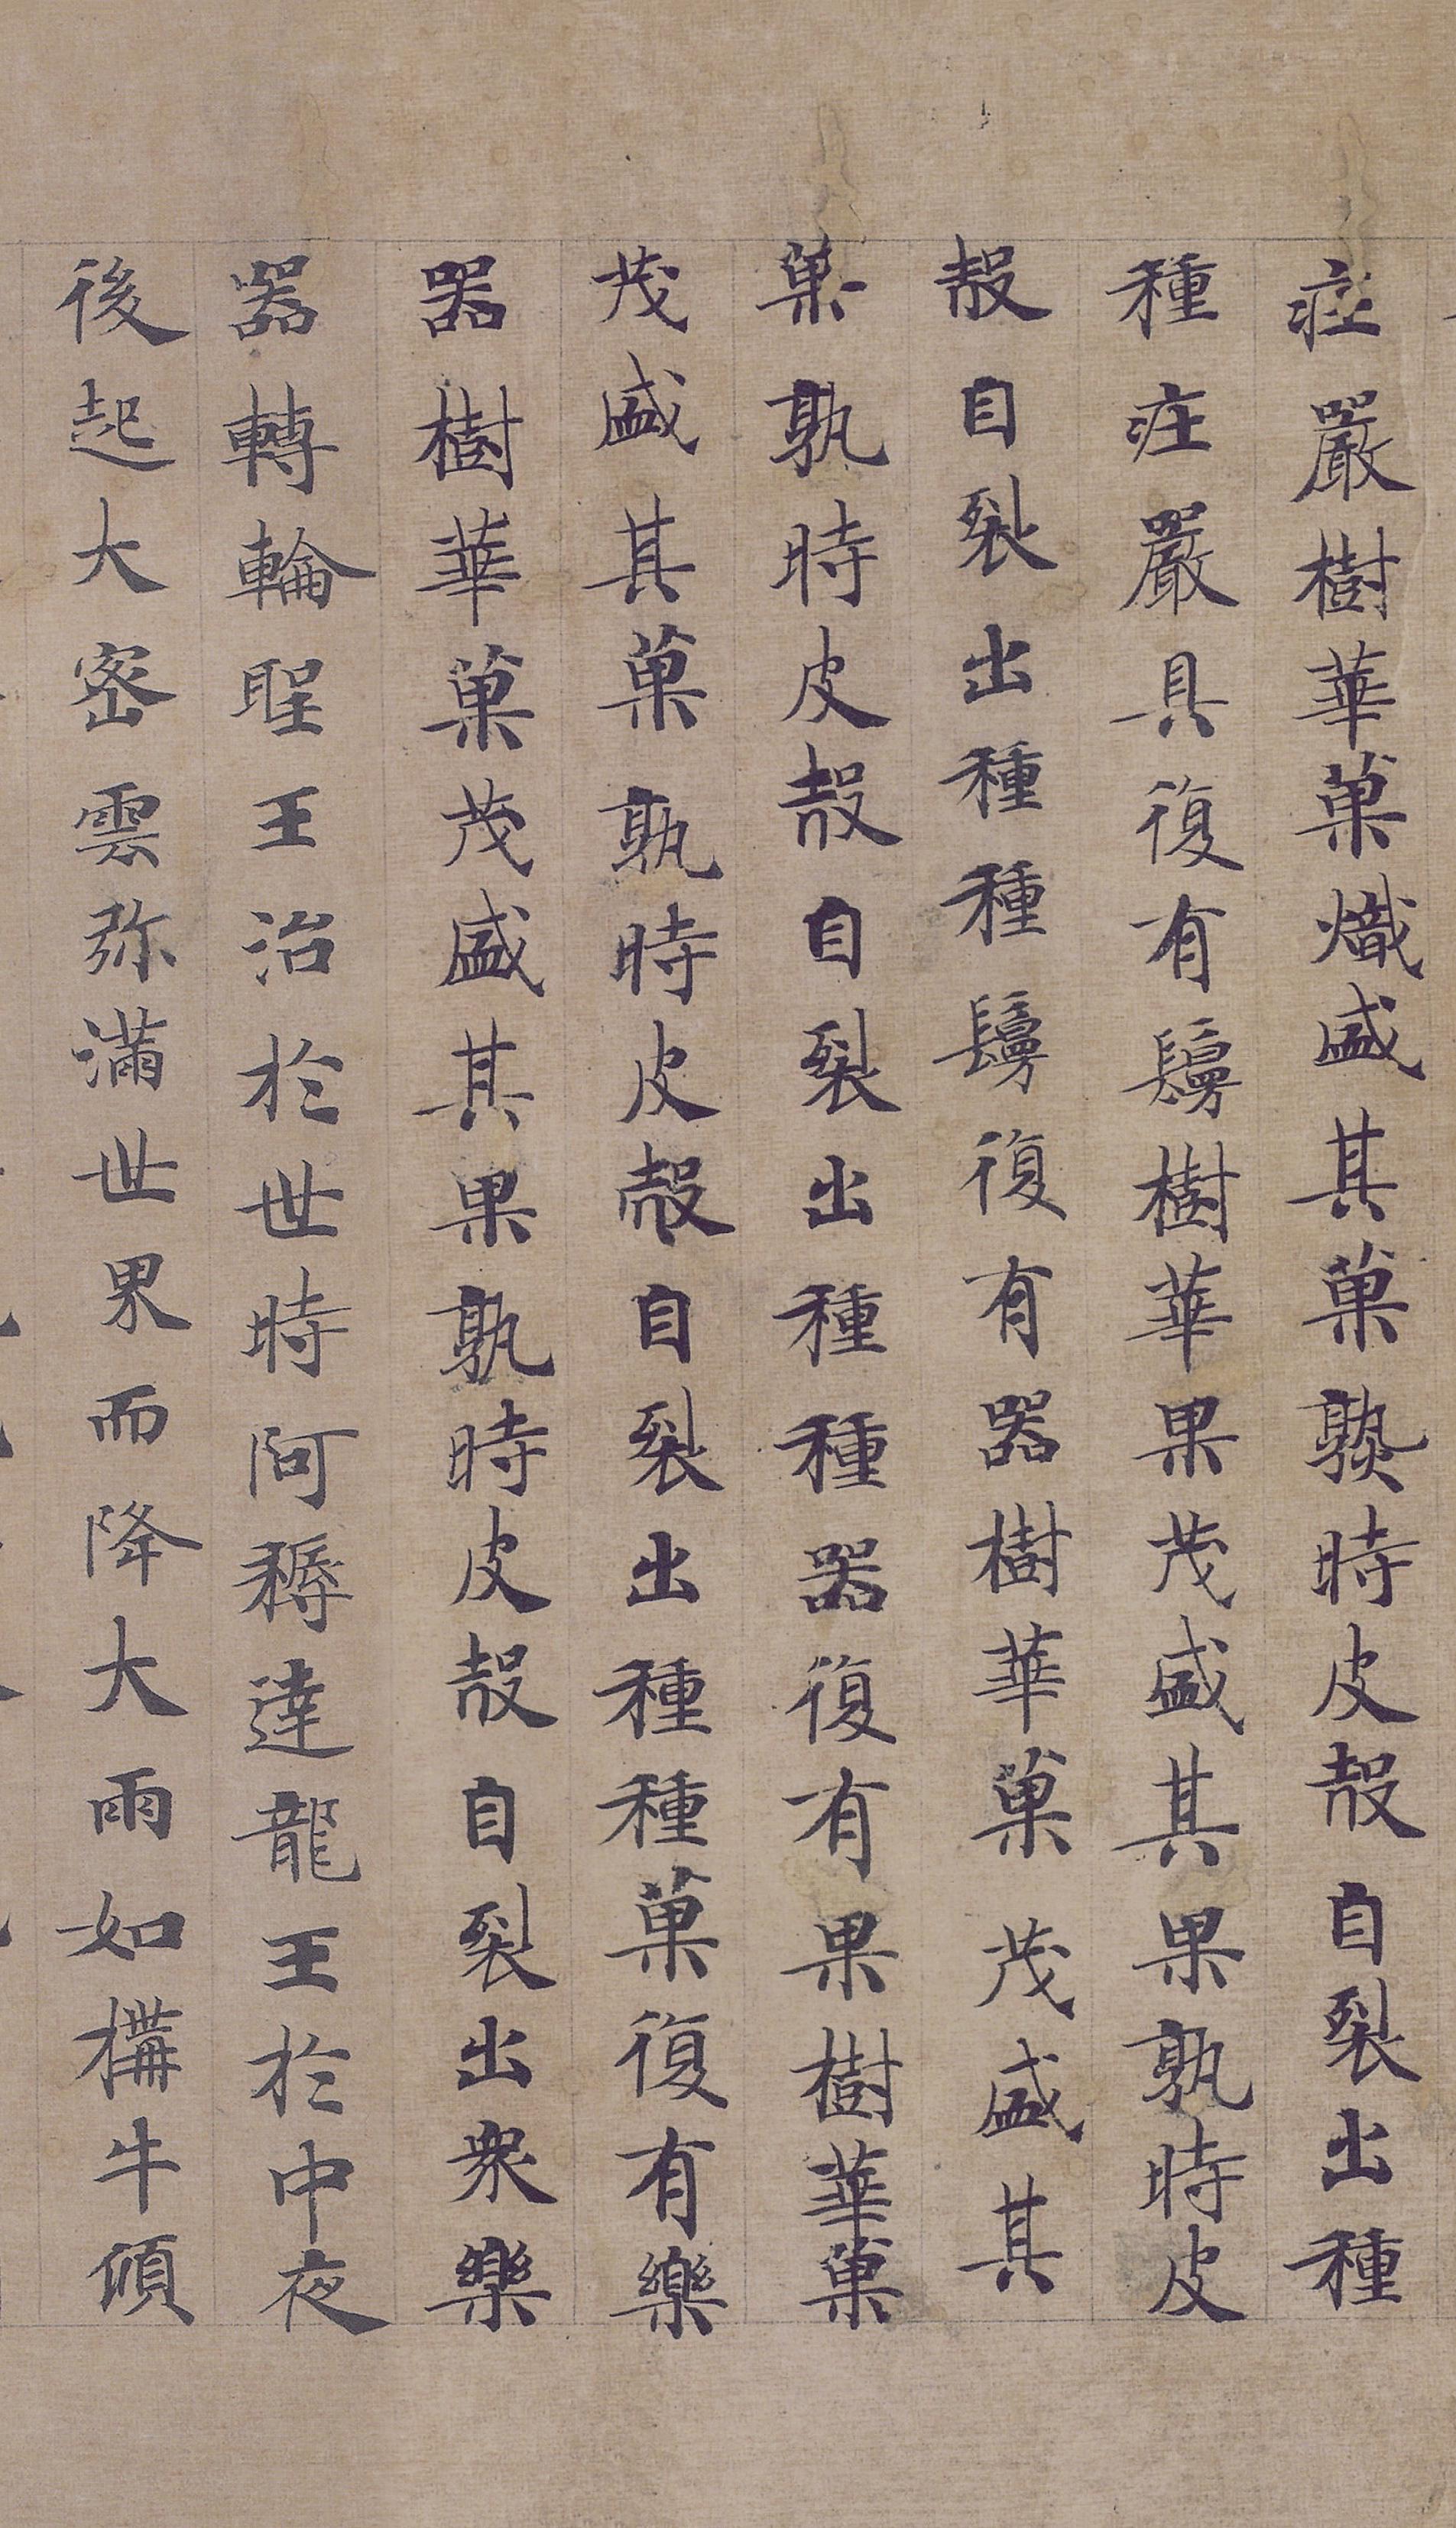 庄嚴樹華菓熾盛其菓熟時皮殼自裂出種
種庄嚴具復有鬘樹華果茂盛其果孰時皮
殼自裂出種種鬘復有器樹華菓茂盛其
菓孰時皮殼自裂出種種器復有果樹華菓
茂盛其菓孰時皮殼自裂出種種菓復有樂
器樹華菓茂盛其果孰時皮殼自裂出衆樂
器轉輪聖王治於世時阿耨達龍王於中夜
後起大密雲弥滿世界而降大雨如構牛傾